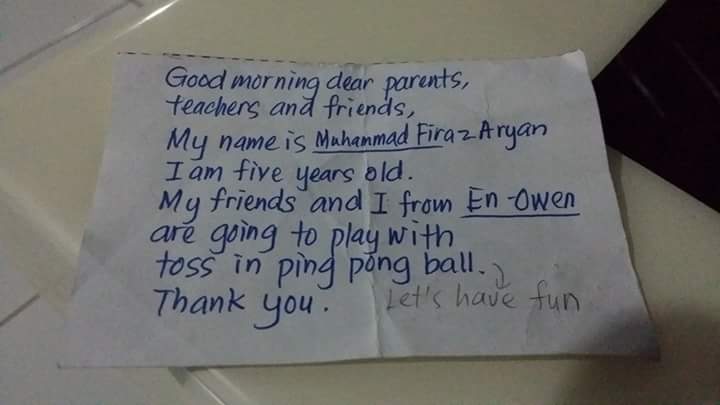 Good morning dear parents,
teachers and friends,
My name is Muhammad Firaz Aryan
I am five years old.
My friends and I from En-Owen
are going to play with
toss in ping pong ball.
Thank you. Let's have fun